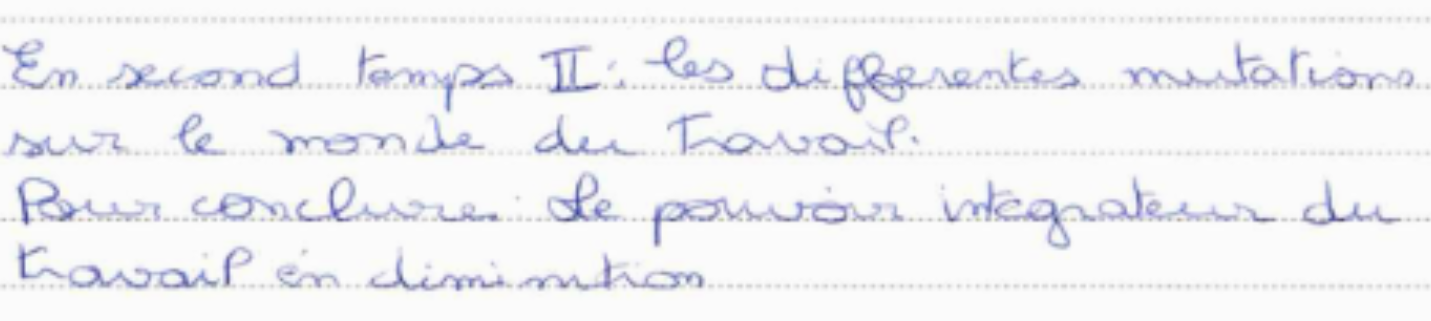 En second temps II : les differentes mutations
sur le monde du Travail.
Pour conclure : Le pouvoir integrateur du
travail en diminution